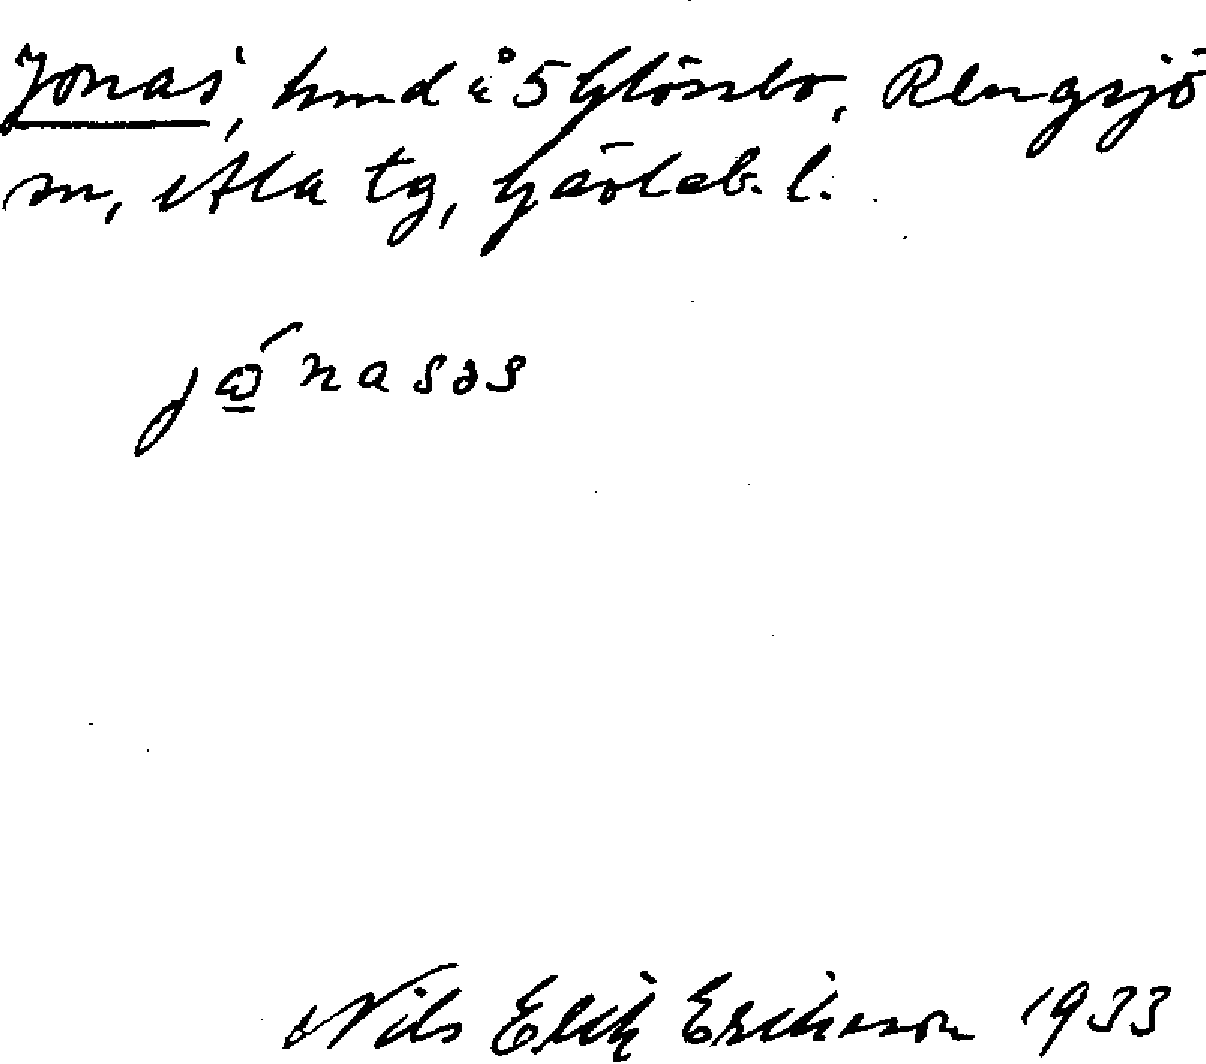 Jonas', hmd å 5 Glössbo, Rengsjö
sn, Ala tg, Gävleb. l.
jó̲nasəs
Nils Erik Eriksson 1933